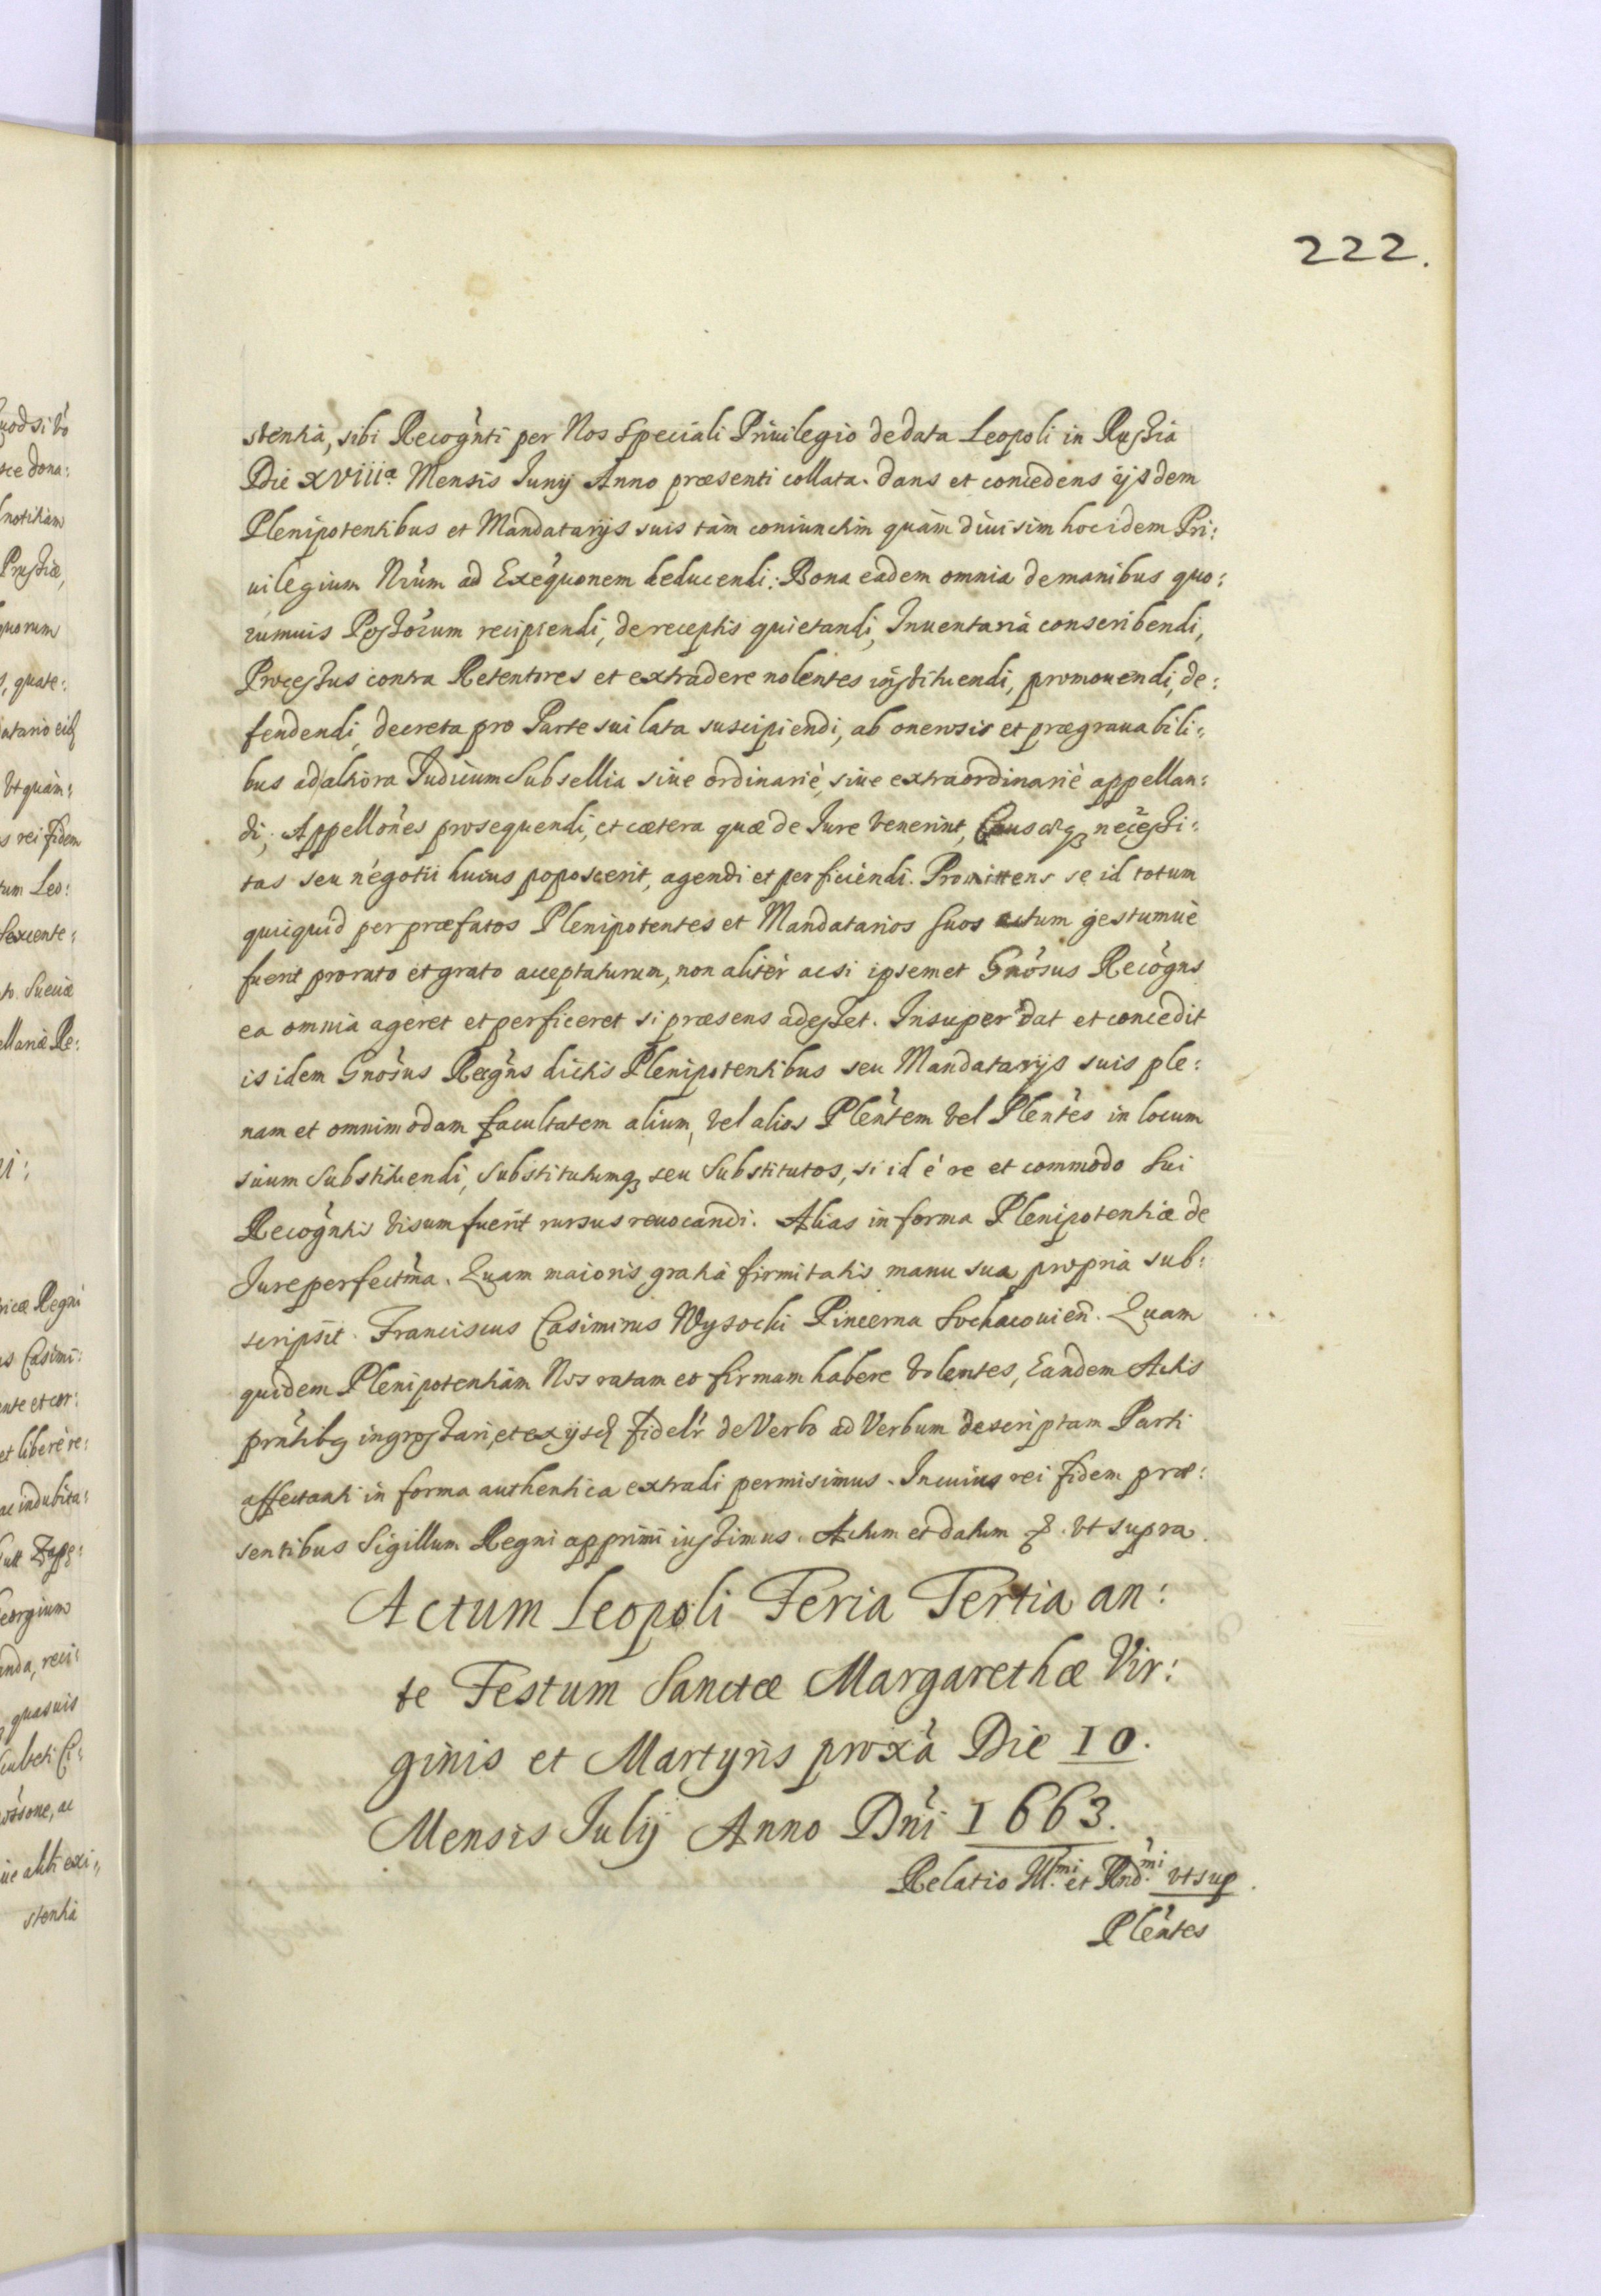 222.
stentia, sibi Recognti per Nos Speciali Priuilegio de data Leopoli in Russia
Die XVIIIa. Mensis Iunij Anno præsenti collata. dans et concedens ijsdem
Plenipotentibus et Mandatarijs suis tàm coniunctim quàm diuisim hoc idem Pri:
uilegium Nrum ad Exequonem deducendi: Bona eadem omnia de manibus quo:
rumuis Possorum recipiendi, de receptis quietandi, Inuentaria conscribendi,
Processus contra Retentores et extradere nolentes instituendi, promouendi, de:
fendendi, decreta pro Parte sui lata suscipiendi, ab onerosis et prægrauabili:
bus ad altiora Iudicium Subsellia siue ordinariè, siue extraordinariè appellan:
di, Appellones prosequendi, et cætera quæ de Iure venerint, necessi:
tas seu negotii huius poposcerit, agendi et perficiendi. Promittens se id totum
quicquid per præfatos Plenipotentes et Mandatarios Suos actum gestumuè
fuerit pro rato et grato accepturum, non alitèr ac si ipsemet Gnosus Recogns
ea omnia ageret et perficeret si præsens adesset. Insuper dat et concedit
is idem Gnosus Recgns dictis Plenipotentibus seu Mandatarijs suis ple:
nam et omnimodam facultatem alium, vel alios Plentem vel Plentes in locum
suum Substituendi, Substitutumq seu Substitutos, si id è re et commodo Sui
Recogntis visum fuerit rursus reuocandi. Alias in forma Plenipotentiæ de
Iure perfectma. Quam maioris gratia firmitatis manu sua propria sub:
scripsit. Franciscus Casimirus Wysocki Pincerna Sochacouien. Quam
quidem Plenipotentiam Nos ratam et firmam habere volentes, Eandem Actis
prntibq ingrossari, et ex ijsd fidelr de Verbo ad Verbum descriptam Parti
affectanti in forma authentica extradi permisimus. In cuius rei fidem præ:
sentibus Sigillum Regni apprimi iussimus. Actum et datum &. vt supra.
Actum Leopoli Feria Tertia an:
te Festum Sanctæ Margarethæ Vir:
ginis et Martyris proxa Die 10.
Mensis Iulij Anno Dni 1663.
Relatio Illmi. et Rndmi. vt sup.
Plentes